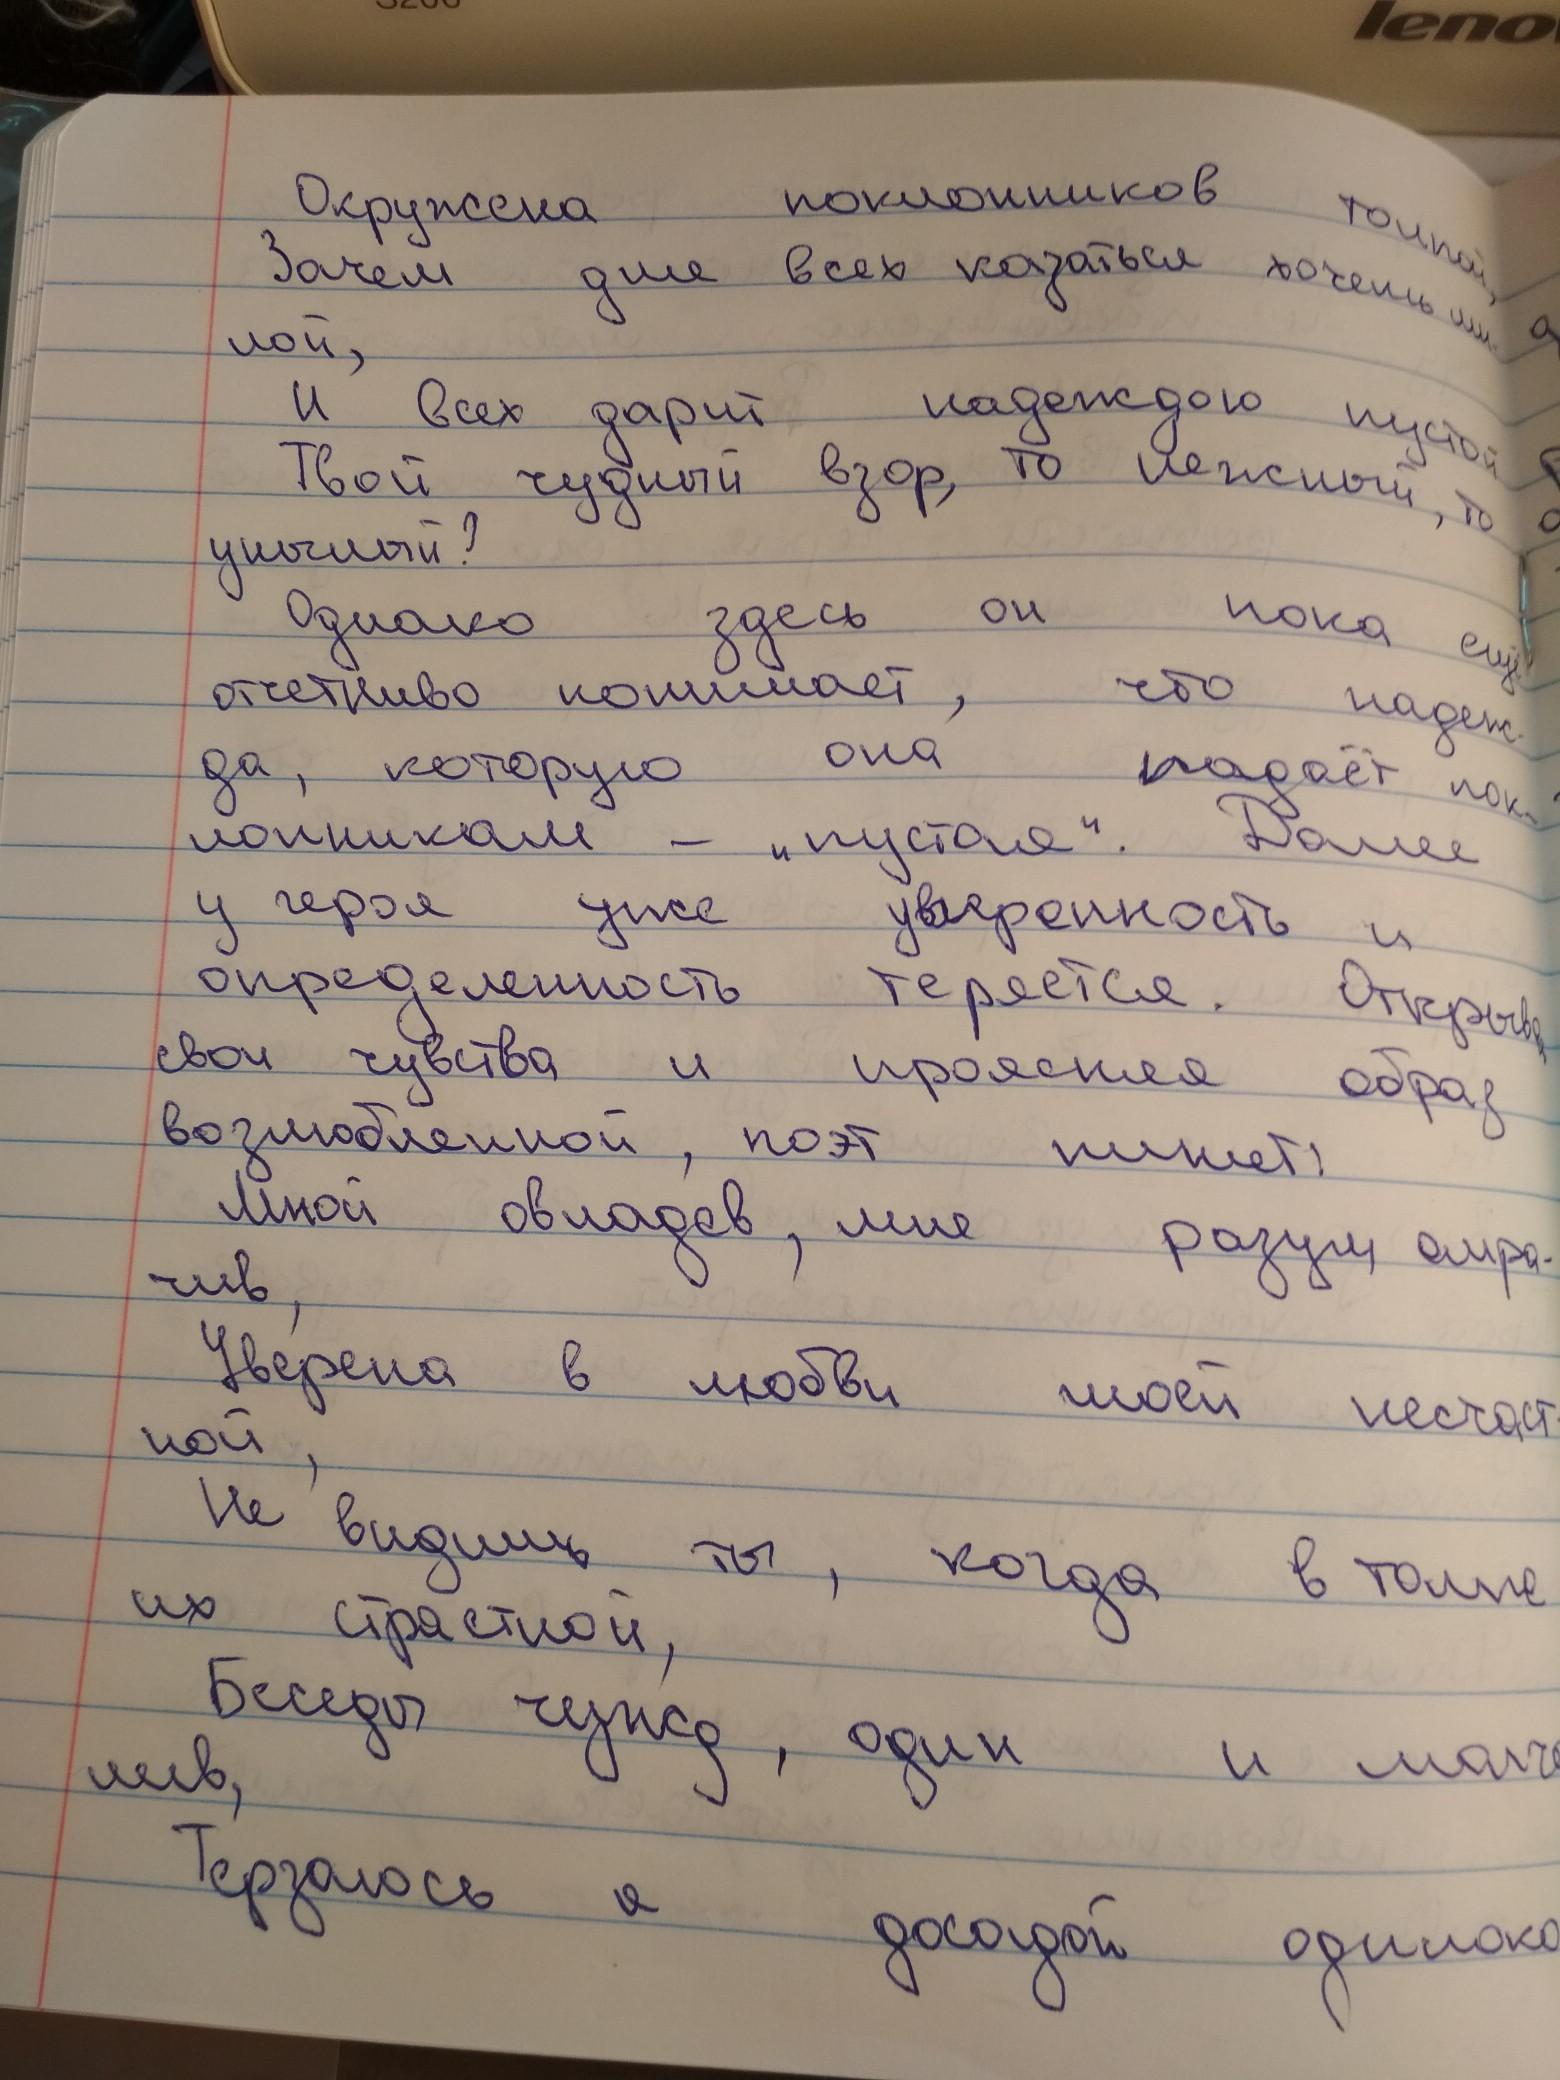 S200
lenov
Окружена поклонников толпой,
Зачем для всех казаться хочешь ми-
лой,
И всех дарит надеждою пустой
Твой чудный взор, то нежный, то
унылый?
Однако здесь он пока ещё
отчетливо понимает, что надеж-
да, которую она подаёт пок-
лонникам – „пустая“. Далее
у героя уже уверенность и
определенность теряется. Открывая
свои чувства и проясняя образ
возлюбленной, поэт пишет:
Мной овладев, мне разум омра-
чив,
Уверена в любви моей несчаст-
ной,
Не видишь ты, когда в толпе
их страстной,
Беседы чужд, один и молча
лив,
Терзаюсь я досадой одиноко